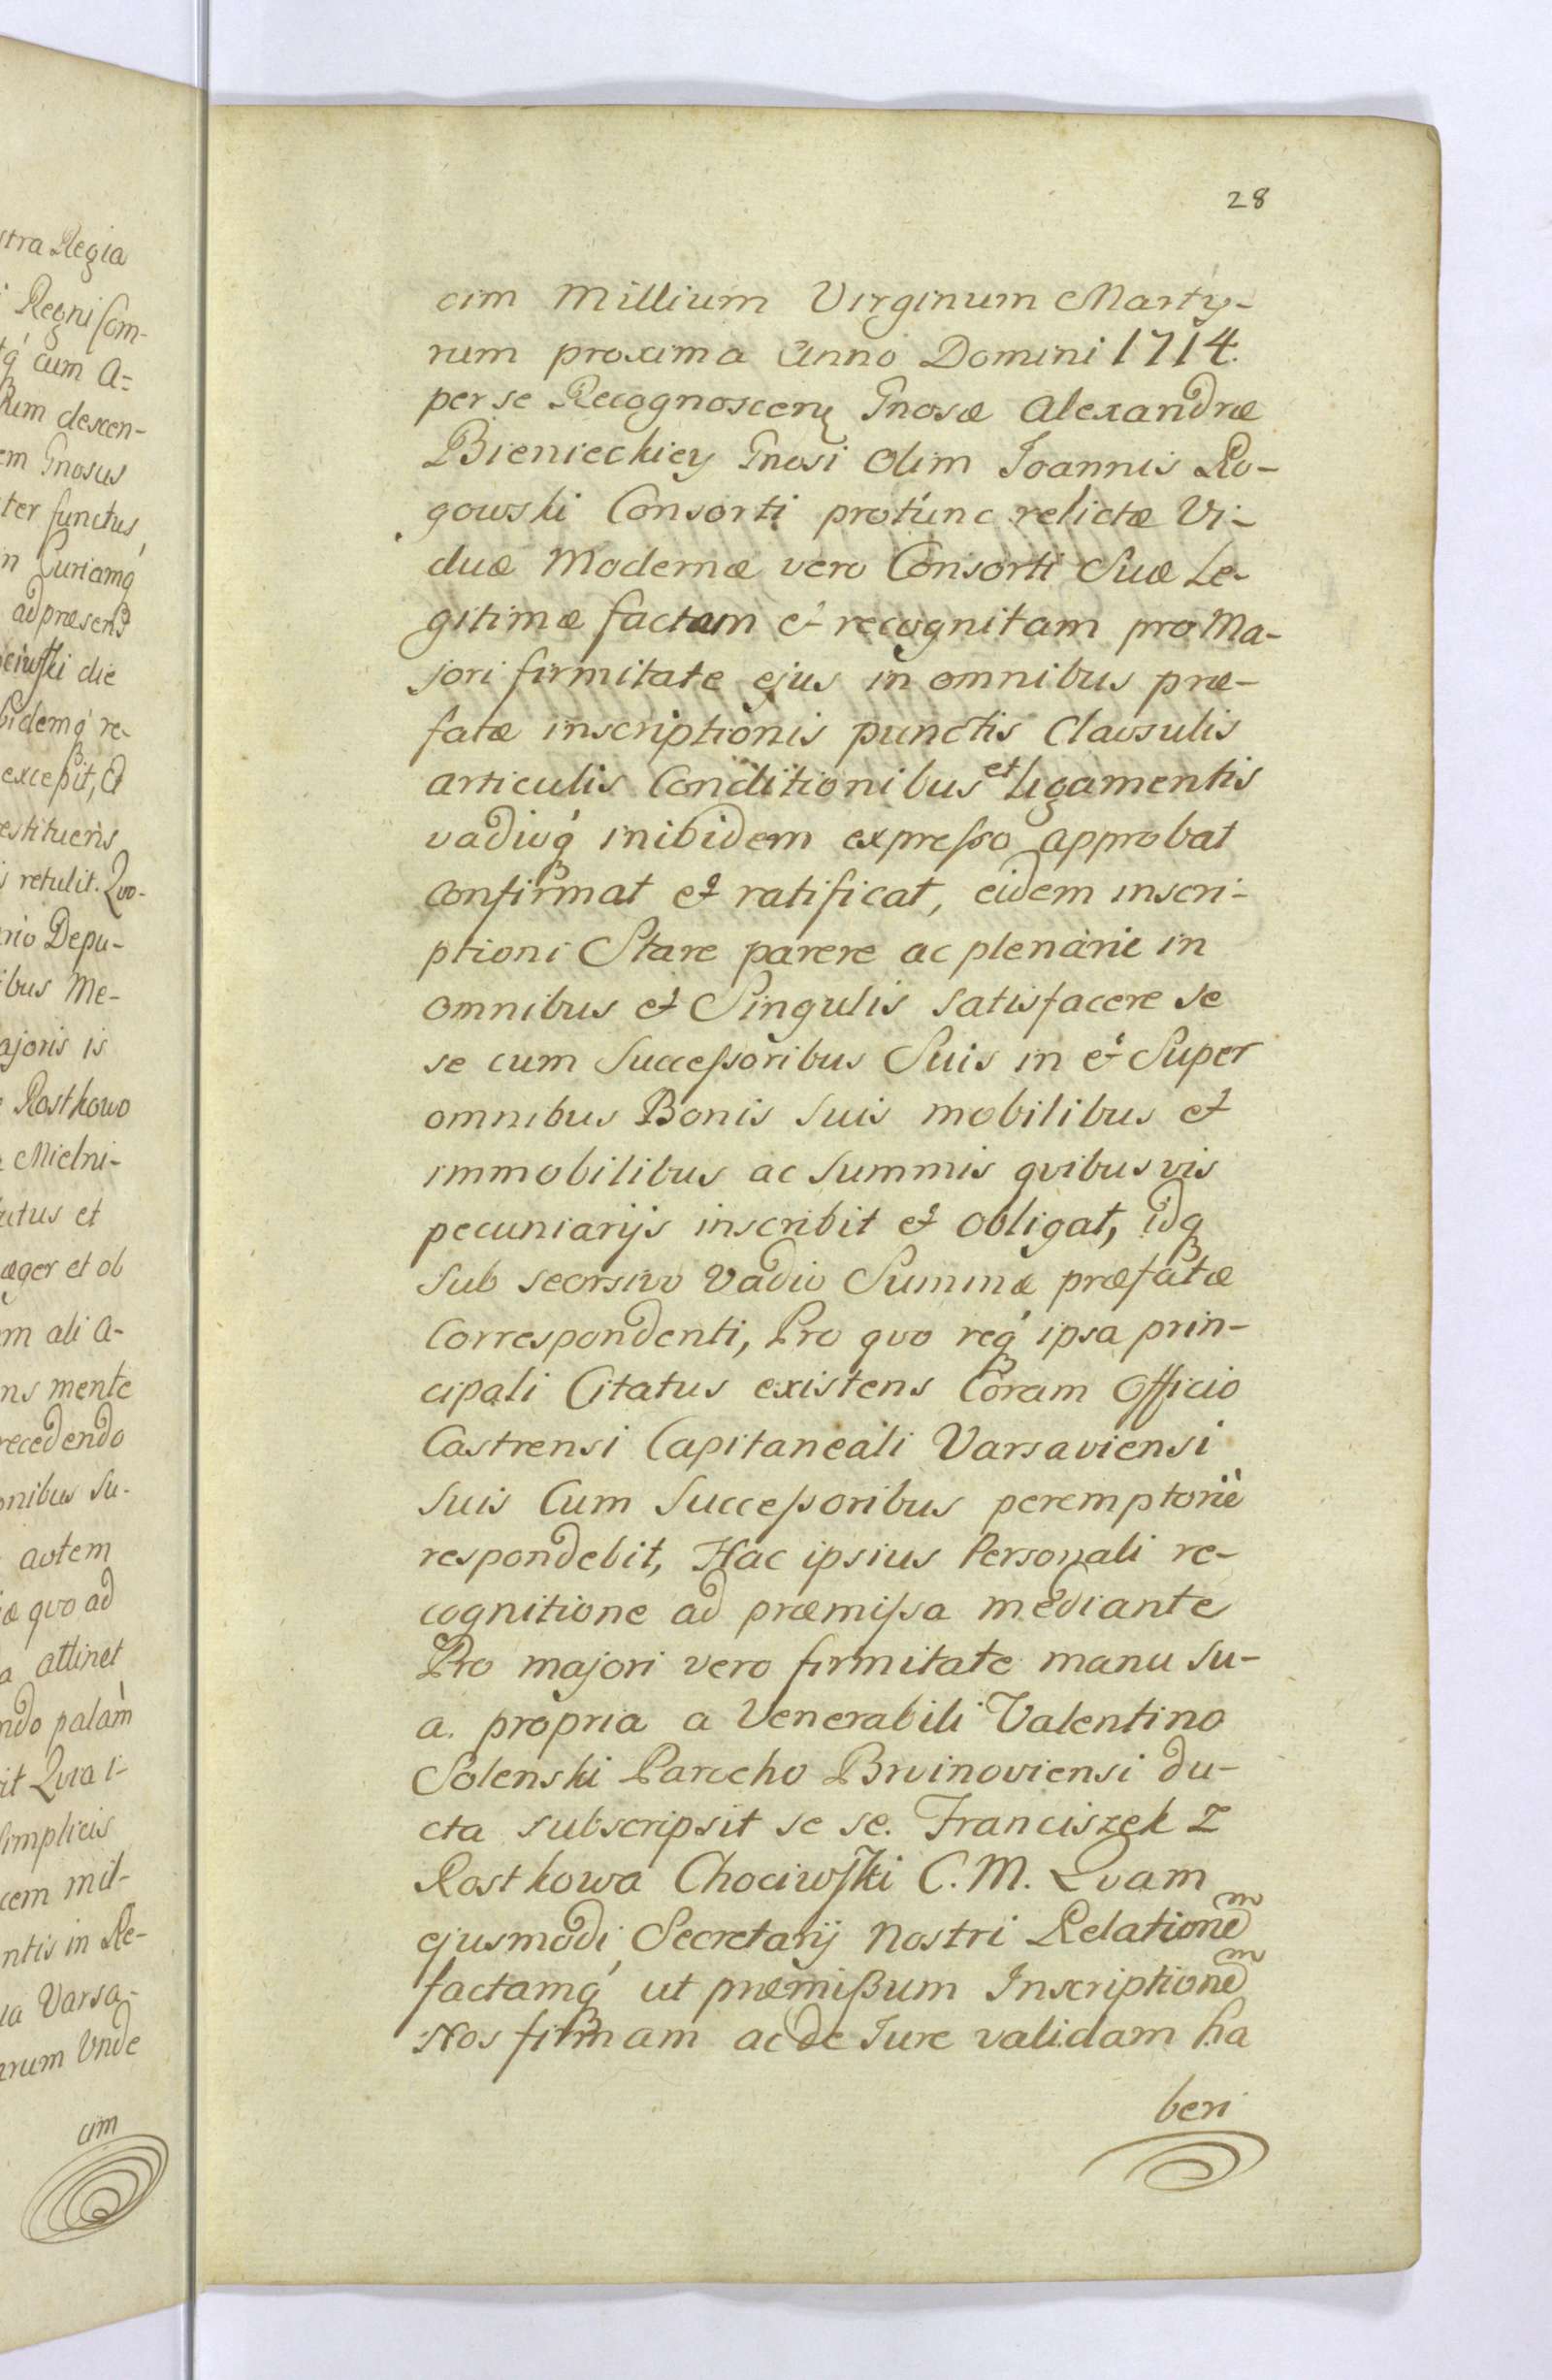 stra Regia
Regni Com-
cum A=
descen-
em Gnosus
ter functus,
in Curiamq́
ad præsens
ciuski die
bidemq́ re-
excepit, Et
estituens
retulit. Quo-
rio Depu-
ibus Me-
ajoris is
Rostkowo
Mielni-
utus et
æger et ob
m ali a-
ns mente
recedendo
onibus su-
autem
æ quo ad
a attinet
ndo palàm
it Qua i-
simplicis
cem mil-
ntis in Re-
ia Varsa-
arum Unde
cim
28
cim Millium Virginum Marty-
rum proxima Anno Domini 1714.
per se Recognoscenṭ Gnosæ Alexandræ
Bienieckiey Gnosi Olim Joannis Ro-
gowski Consorti protunc relictæ Vi-
duæ Modernæ vero Consorti Suæ Le-
gitimæ factam et recognitam pro Ma-
jori firmitate ejus in omnibus præ-
fatæ inscriptionis punctis Clausulis
articulis Conditionibus et Ligamentis
vadioq́ inibidem expresso approbat
confirmat et ratificat, eidem inscri-
ptioni Stare parere ac plenarie in
omnibus et Singulis satisfacere se
se cum Successoribus Suis in et Super
omnibus Bonis suis mobilibus et
immobilibus ac summis qvibusvis
pecuniarijs inscribit et obligat, idq
sub seorsivo Vadio Summæ præfatæ
Correspondenti, Pro qvo req́ ipsa prin-
cipali Citatus existens Coram Officio
Castrensi Capitaneali Varsaviensi
suis Cum Successoribus peremptorie
respondebit, Hac ipsius Personali re-
cognitione ad præmissa mediante
Pro majori vero firmitate manu su-
a propria a Venerabili Valentino
Solenski Parocho Brwinoviensi du-
cta subscripsit se se. Franciszek z
Rostkowa Chociwski C.M. Qvam
ejusmodi Secretarij Nostri Relationem
factamq́ ut præmißum Inscriptionem
Nos firmam ac de Jure validam ha
beri